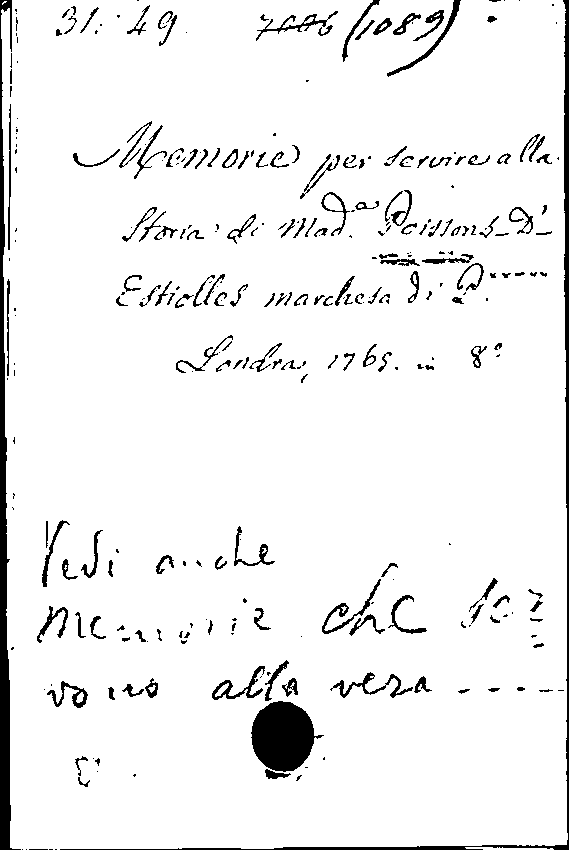 31. 49 7006 (1089)
Memorie per servire alla
Storia di Mad.a Poissons-D'
Estiolles marchesa di P.....
Londra, 1765. in 8°
Vedi anche
Memorie che ser=
vono alla vera ----